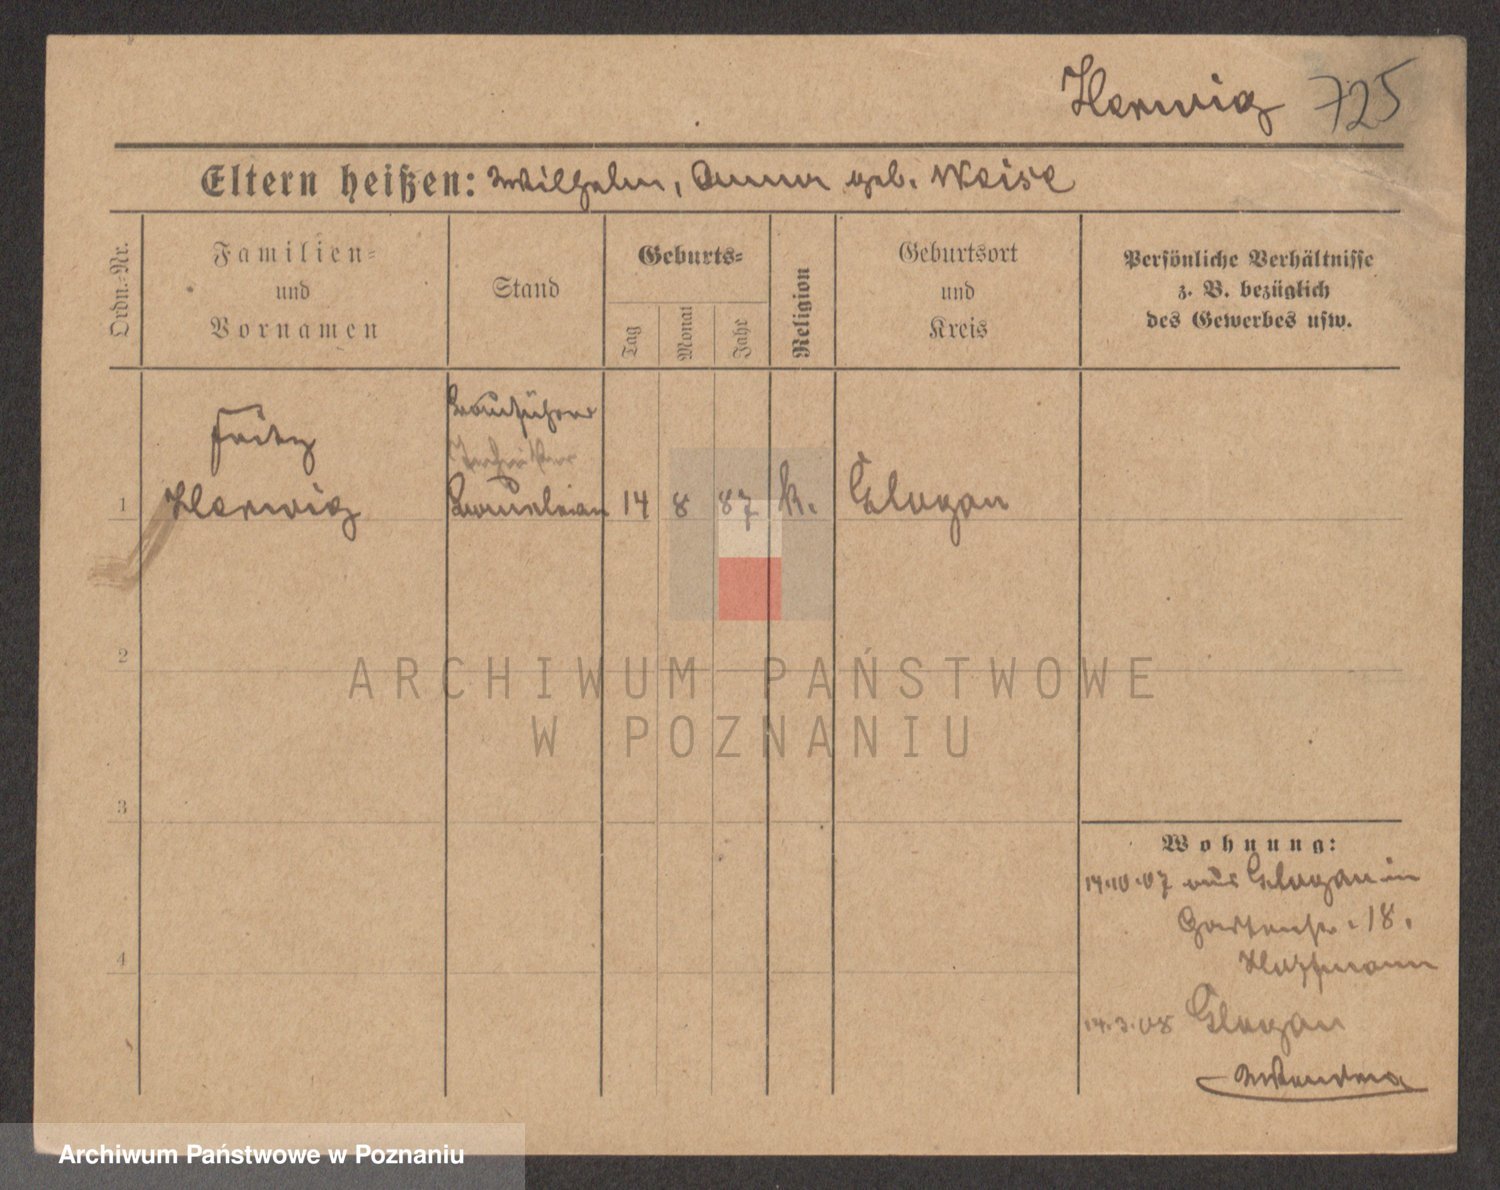 Herwig 725
Eltern heißen: Wilhelm, Anna geb. Weise
Ordn.-Nr.
Familien-
und
Vornamen
Stand
Geburts-
Tag
Monat
Jahr
Religion
Geburtsort
und
Kreis
Persönliche Verhältnisse
z. B. bezüglich
des Gewerbes usw.
Bauführer
Fritz
Techniker
1 Herwig 14 8 87 k. Glogau
2
3
4
ARCHIWUM PAŃSTWOWE
W POZNANIU
Wohnung:
14.10.07 aus Glogau in
Gartenstr. 18.
Hoffmann
14.3.08 Glogau
Archiwum Państwowe w Poznaniu